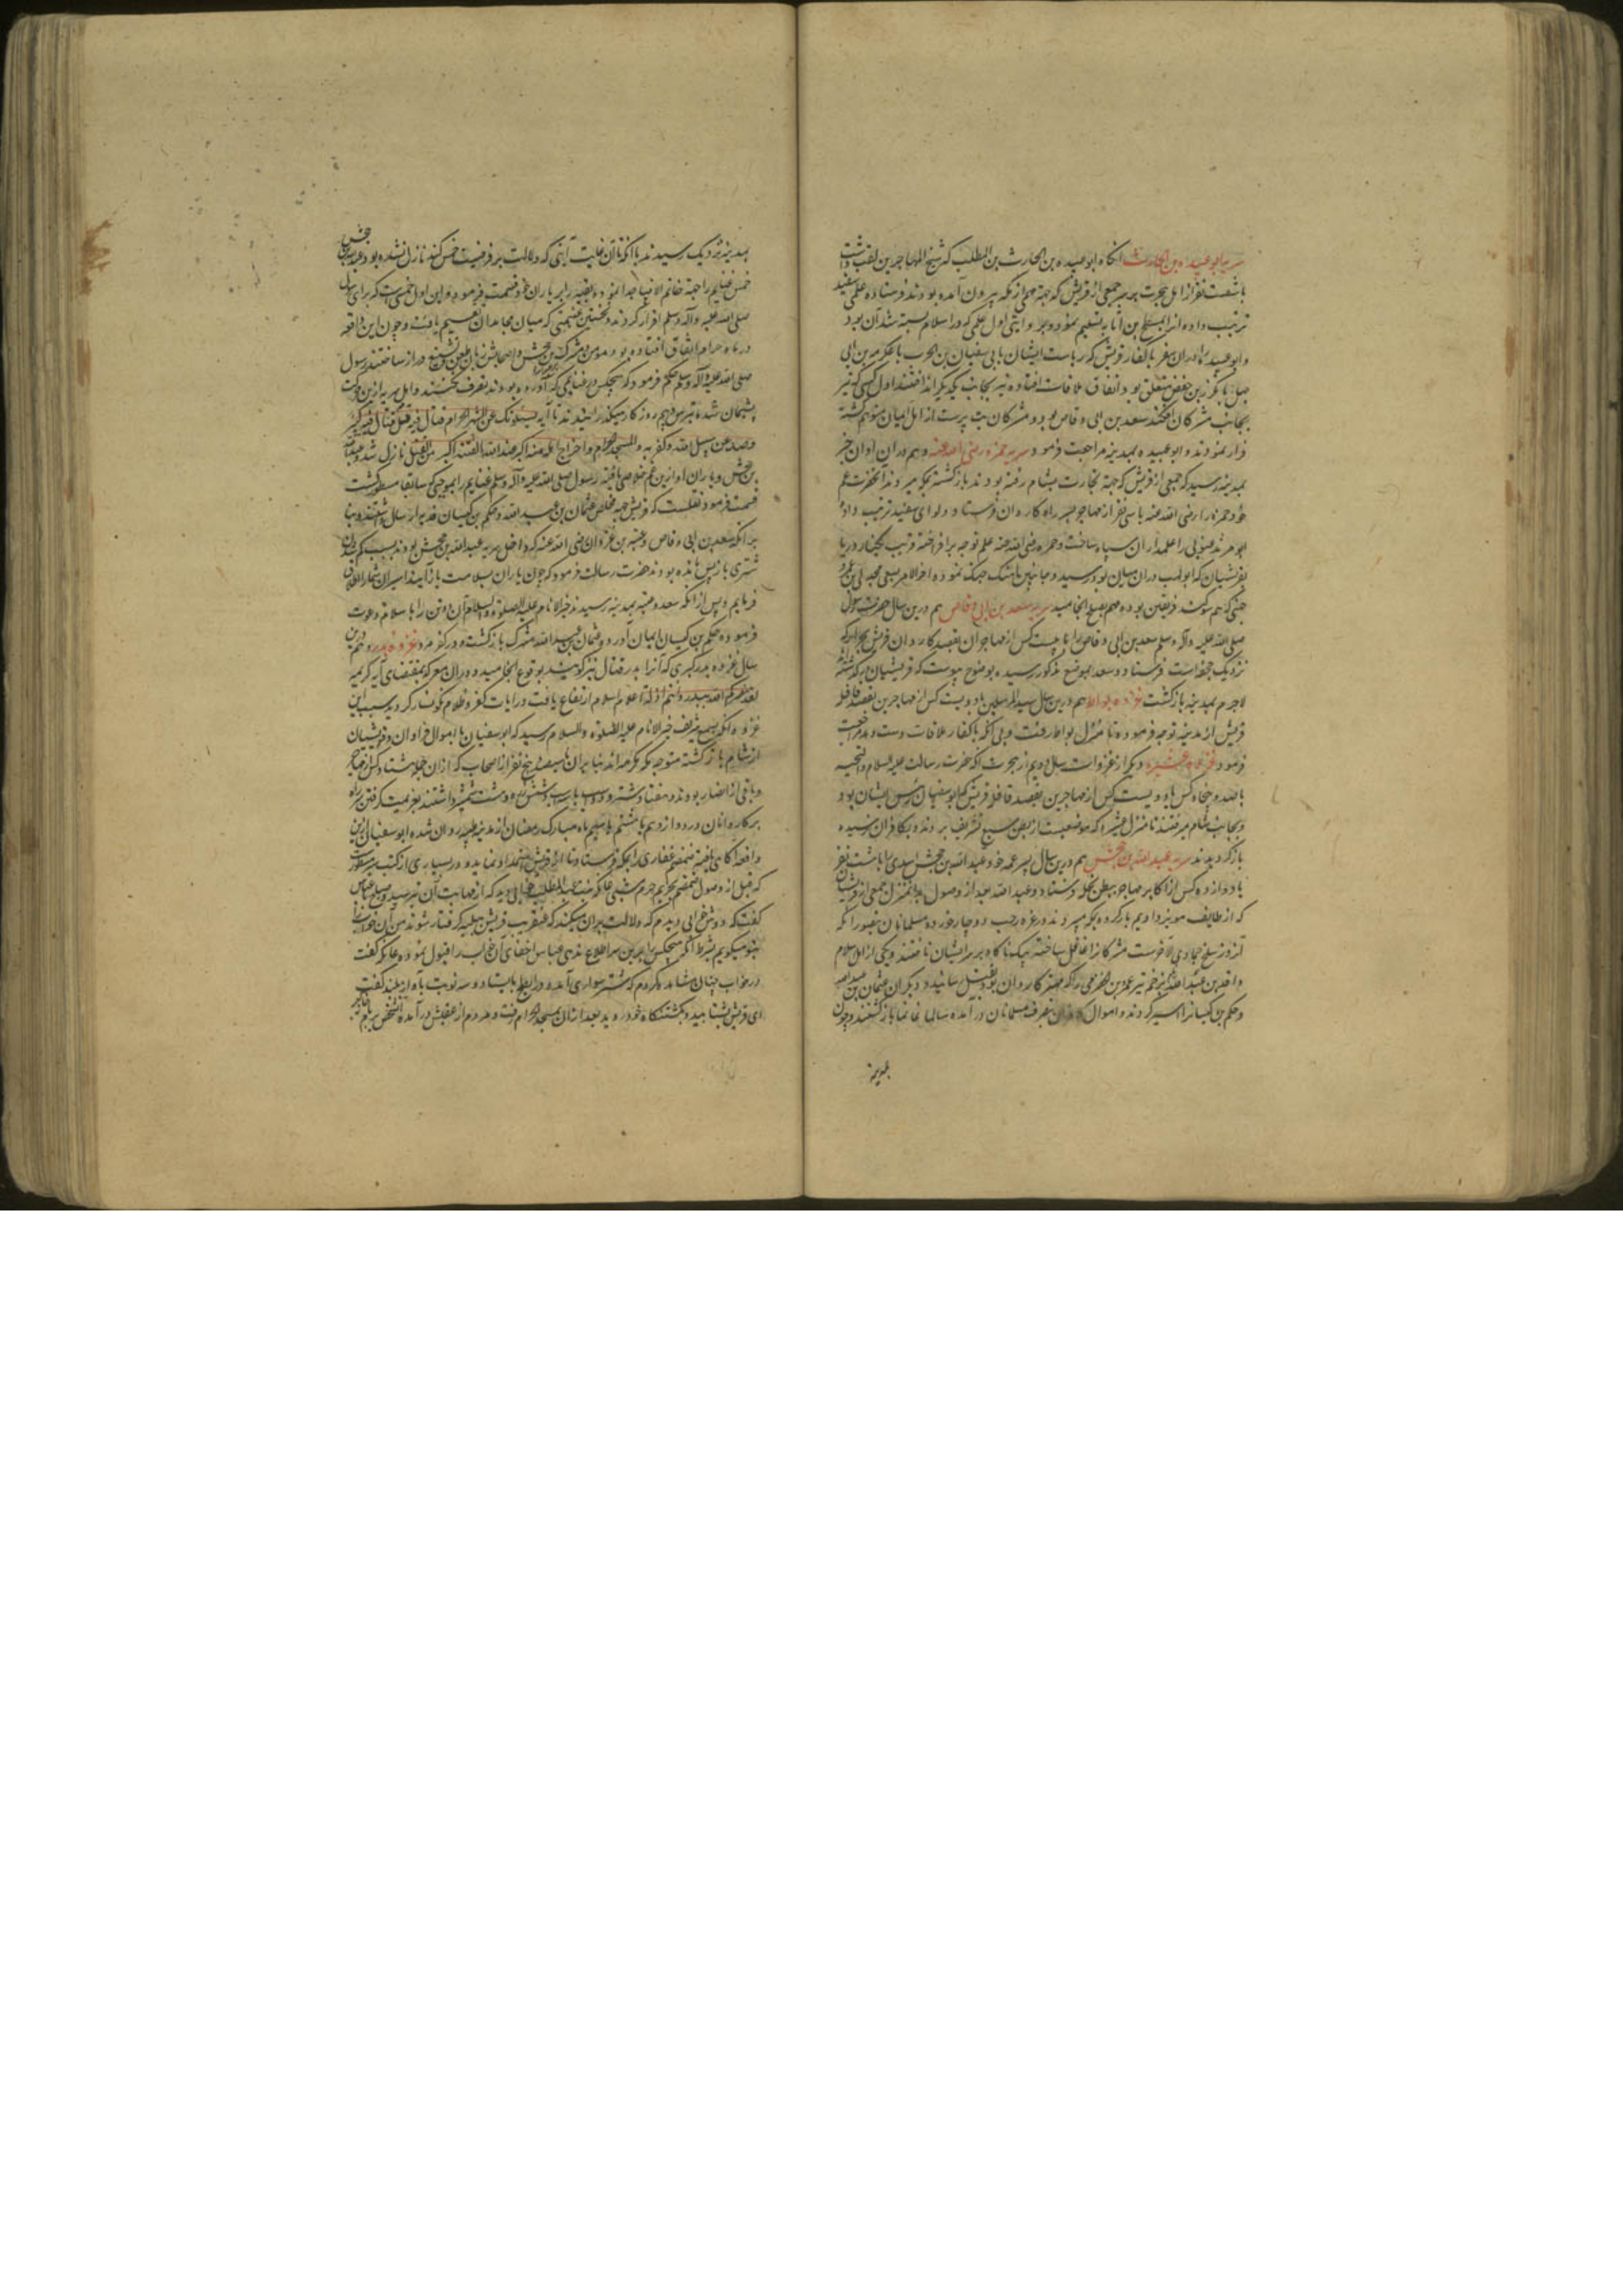 سریه ابو عبیده بن الحارث انکاه ابو عبیده بن الحارث بن المطلب که شیخ المهاجرین لقب داشت
با شصت نفر از اهل هجرت بر سر جمعی از قریش که جهة مهمی از مکه بیرون آمده بودند فرستاده علمی سفید
ترتیب داده آنرا بمسطح بن اثاثه تسلیم نمود و بروایتی اول علمی که در اسلام بسته شد آن بود
و ابو عبیده را دران سفر با کفار قریش که ریاست ایشان بابی سفیان بن الحرب یا عکرمه بن ابی
جهل یا مکرز بن حفص متعلق بود اتفاق ملاقات افتاده تیر بجانب یکدیکر انداختند اول کسی که تیر
بجانب مشرکان افکند سعد بن ابی وقاص بود و مشرکان بت پرست از اهل ایمان متوهم کشته
فرار نمودند و ابو عبیده بمدینه مراجعت فرمود سریه حمزه رضی الله عنه و هم دران اوان خبر
بمدینه رسید که جمعی از قریش که جهة تجارت بشام رفته بودند بازکشته بمکه میروند آنحضرت عم
خود حمزه را رضی الله عنه با سی نفر از مهاجر بر سر راه کاروان فرستاد و لوای سفید ترتیب داده
ابو مرثد غنوی را علمدار آن سپاه ساخت و حمزه رضی الله عنه علم توجه برافراخته قریب بکنار دریا
بقرشیان که ابو جهل دران میان بود رسید و جانبین آهنک جنک نموده آخر الامر بسعی مجدی بن عمرو
جهنی که هم سوکند فریقین بود مهم بصلح انجامید سریه سعد بن ابی وقاص هم درین سال حضرت رسول
صلی الله علیه و آله و سلم سعد بن ابی وقاص را با بیست کس از مهاجران بقصد کاروان قریش بخرار که
نزدیک جحفه است فرستاد و سعد بموضع مذکور رسیده بوضوح پیوست که قریشیان
لاجرم بمدینه بازکشت غزوه بواط هم درین سال سید المرسلین با دویست کس از مهاجرین بقصد قافله
قریش از مدینه توجه فرموده تا منزل بواط رفت و بی آنکه با کفار ملاقات دست دهد مراجعت
فرمود غزوه عشیره دیکر از غزوات سال دویم از هجرت آنکه حضرت رسالت علیه السلام و التحیه
با صد و پنجاه کس یا دویست کس از مهاجرین بقصد قافله قریش که ابو سفیان رئیس ایشان بود
و بجانب شام میرفتند تا منزل عشیره که موضعیست از بطن ینبع تشریف بردند و بکافران نرسیده
بازکردیدند سریه عبد الله بن جحش هم درین سال پسر عمه خود عبد الله بن جحش اسدی را با هشت نفر
یا دوازده کس از اکابر مهاجر ببطن نخله فرستاد و عبد الله بعد از وصول بدان منزل جمعی از قریشیان
که از طایف مویز و ادیم بار کرده بمکه میبردند در غره رجب دوچار خورده مسلمانان بتصور آنکه
آنروز سلخ جمادی الآخرست مشرکانرا غافل ساخته بیک ناکاه بر سر ایشان تاختند و یکی از اهل اسلام
واقد بن عبد الله بزخم تیر عمرو بن حضرمی را که مهتر کاروان بود بقتل رسانید و دیکران عثمان بن عبد الله
و حکم بن کیسانرا اسیر کردند و اموال بتصرف مسلمانان درآمده سالما غانما بازکشتند و چون
بمدینه
بمدینه نزدیک رسیدند با آنکه تا آن غایت آیتی که دلالت بر فرضیت خمس کند نازل نشده بود عبد الله بن جحش
خمس غنایم را جهة خاتم الانبیا جدا نموده بقیه را بر یاران خود قسمت فرمود و این اول خمسی است که برای رسول
صلی الله علیه و آله و سلم افراز کردند و نخستین غنیمتی که میان مجاهدان تقسیم یافت و چون این واقعه
در ماه حرام اتفاق افتاده بود مؤمن و مشرک بن جحش و اصحابش زبان طعن و تشنیع دراز ساختند رسول
صلی الله علیه و آله و سلم حکم فرمود که هیچکس در غنایمی که آورده بودند تصرف نکنند و اهل سریه ازین حرکت
پشیمان شده بترس و بیم روزکار میکذرانیدند تا آیه یسئلونک عن الشهر الحرام قتال فیه قل قتال فیه کبیر
وصد عن سبیل الله وکفر به والمسجد الحرام واخراج اهله منه اکبر عند الله والفتنة اکبر من القتل نازل شد و عبد الله
بن جحش و یاران او ازین غم خلاصی یافته رسول صلی الله علیه و آله و سلم غنایم را بموجبی که سابقا مسطور کشت
قسمت فرمود نقلست که قریش جهة مخلص عثمان بن عبد الله و حکم بن کیسان فدیه ارسال داشتند و بنا
بر آنکه سعد بن ابی وقاص و عتبه بن غزوان رضی الله عنه که داخل سریه عبد الله بن جحش بودند بسبب کم شدن
شتری باز پس مانده بودند حضرت رسالت فرمود که چون یاران بسلامت باز آیند اسیران شما را اطلاق
فرمایم و پس از آنکه سعد و عتبه بمدینه رسیدند خیر الانام علیه الصلوة و السلام آن دو تن را باسلام دعوت
فرموده حکم بن کیسان ایمان آورد و عثمان بن عبد الله مشرک بازکشت و در کفر مرد غزوه بدر و هم درین
سال غزوه بدر کبری که آنرا بدر قتال نیز کویند بوقوع انجامید و دران معرکه بمقتضای آیه کریمه
لقد نصرکم الله ببدر وانتم اذلة اعلام اسلام ارتفاع یافت و رایات کفر و ظلام نکونسار کردید سبب این
غزوه آنکه بسمع شریف خیر الانام علیه الصلوة و السلام رسید که ابو سفیان با اموال فراوان و قرشیان
از شام بازکشته متوجه مکه مکرمه اند بنابران با سیصد و پنج نفر از اصحاب که ازان جمله هشتاد کس از مهاجر
و باقی از انصار بودند و هفتاد شتر و دو اسب یا سه اسب و شش زره و هشت شمشیر داشتند بعزیمت کرفتن سر راه
بر کاروانان در دوازدهم یا هشتم یا سیم ماه مبارک رمضان از مدینه طیبه روان شده ابو سفیان ازین
واقعه آکاهی یافته ضمضم غفاری را بمکه فرستاد تا اهل قریش امداد نمایند و در بسیاری از کتب مسطورست
که قبل از وصول ضمضم بحریم حرم شبی عاتکه بنت عبد المطلب خوابی دید که از مهابت آن بترسید و صباح با عباس
کفت که دوش خوابی دیدم که دلالت بران میکند که عنقریب قریش ببلیه کرفتار شوند من آن خواب را
بتو میکویم بشرط آنکه هیچکس را برین سر اطلاع ندهی عباس اخفای آن خواب را قبول نموده عاتکه کفت
در خواب چنان مشاهده کردم که شتر سواری آمد و در ابطح بایستاد و سه نوبت بآواز بلند کفت
ای قریش بشتابید و بکشتنکاه خود روید بعد ازان بمسجد الحرام رفت و مردم از عقبش درآمده آن شخص بر بام